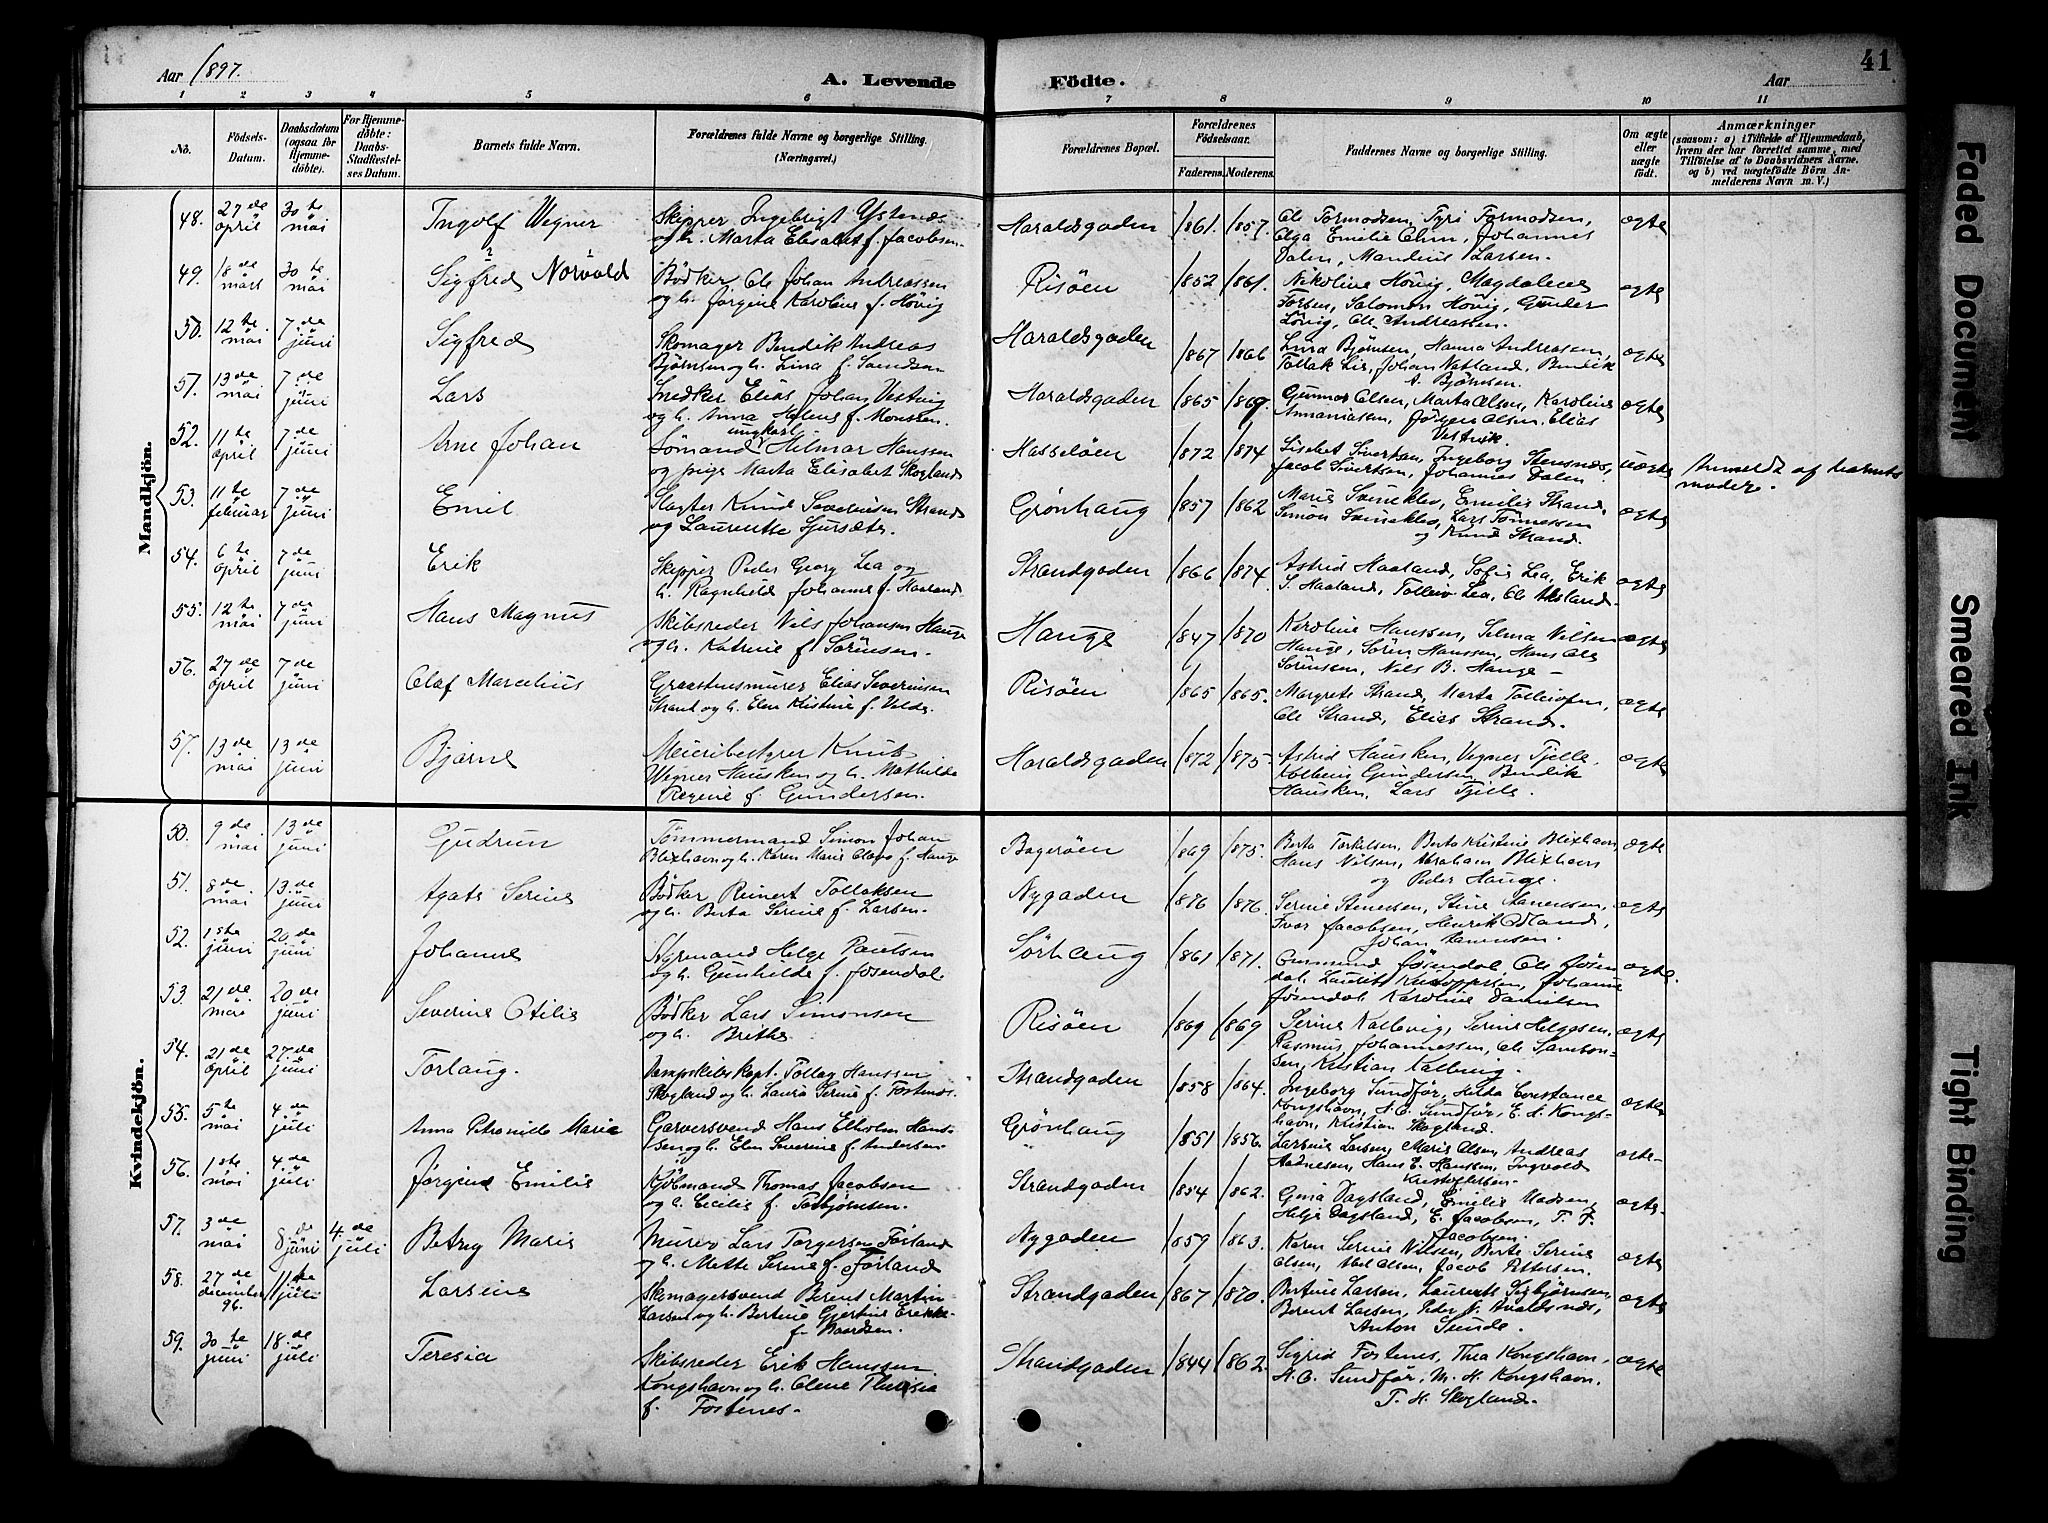 Aar 1897.
A. Levende Födte.
Aar
41
1 2 3 4 5 6 7 8 9 10 11
No.
Födsels-Datum.
Daabsdatum (ogsaa for Hjemme-døbte).
For Hjemme-døbte: Daabs-Stadfæstel-ses Datum.
Barnets fulde Navn.
Forældrenes fulde Navne og borgerlige Stilling. (Næringsvei.)
Forældrenes Bopæl.
Forældrenes Födselsaar.
Faderens. Moderens.
Faddernes Navne og borgerlige Stilling.
Om ægte eller uægte födt.
Anmærkninger
(saasom: a) i Tilfælde af Hjemmedaab, hvem der har forrettet samme, med Tilföielse af to Daabsvidners Navne, og b) ved uægtefödte Börn Anmelderens Navn m. V.)
Mandkjön.
48. 27de april 30te mai Ingolf Wegner Skipper Ingebrigt
og h. Marta Elisabet f. Jacobsen. Haraldsgaden 1861. 1857. Ole Tormodsen, Tyri Tormodsen,
Olga Emilie Johannes
Dalen, Mandius Larsen. ægte
49. 18de mars 30te mai Sigfred Norvald Bödker Ole Johan Andreassen
og h. Jørgine Karoline f. Hövig Risöen 1852 1861. Nikoline Hövig, Magdalene
Salomon Hövig, Gunder
Ole Andreasen. ægte
50. 12te mai 7de juni Sigfred Skomager Bendik Andreas
Bjørnsen og h. Lina f. Haraldsgaden 1867 1866 Lina Bjørnsen, Hanna Andreassen,
Tollak Lie, Johan Natland, Bendik
A. Bjørnsen. ægte
51. 13de mai 7de juni Lars Snedker Elias Johan Vestvig
og h. Anna Helene f. Monsen. Haraldsgaden 1865 1869. Gunnar Olsen, Marta Olsen, Karoline
Annaniasen, Jörgen Olsen, Elias
Vestvik. ægte
52. 11te april 7de juni Arne Johan ungkarl
Sømand Hilmar Hanssen
og pige Marta Elisabet Skogland Hasselöen 1872 1874 Lisebet Sivertsen, Ingeborg Stensnes,
Jacob Sivertsen, Johannes Dalen uægte Anmeldt af barnets
moder.
53. 11te februar 7de juni Emil Slagter Knud Severinsen Strand
og Laurentse Gjursæter. Grönhaug 1857 1862 Marie Svineklev, Emilie Strand,
Simon Svineklev, Lars Tönnessen
og Knud Strand. ægte
54. 6te april 7de juni Erik Skipper Peder Georg Lea og
h. Ragnhild Johanne f. Haaland. Strandgaden 1866 1874. Astrid Haaland, Sofie Lea, Erik
S. Haaland, Tolleiv Lea, Ole ægte
55. 12te mai 7de juni Hans Magnus Skibsreder Nils Johansen Hauge
og h. Katrine f. Sörensen. Hauge 1847 1870 Karoline Hanssen, Selma Nilsen
Hauge, Sören Hanssen, Hans Ole
Sörensen, Nils B. Hauge - ægte
56. 27de april 7de juni Olaf Marcelius Graastensmurer Elias Severinsen
Strand og h. Elen Kristine f. Valde. Risöen 1865 1865. Margrete Strand, Marta Tolleivsen,
Ole Strand, Elias Strand. ægte
57. 13de mai 13de juni Bjarne Meieribestyrer Knut
Wegner Hausken og h. Mathilde
Regine f. Gundersen. Haraldsgaden 1872 1875 Astrid Hausken, Vegner Tjelle,
Kolbein Gundersen, Bendik
Hausken, Lars Tjelle. ægte
Kvindekjön.
50. 9de mai 13de juni Gudrun Tömmermand Simon Johan
Blixhavn og h. Karen Marie Olava f. Hauge Bagerøen 1869 1875. Berta Torkelsen, Berta Kristine Blixhavn,
Hans Nilsen, Abraham Blixhavn
og Peder Hauge. ægte
51. 8de mai 13de juni Agate Serine Bödker Reinert Tollaksen
og h. Berta Serine f. Larsen. Nygaden 1876 1876. Serine Stenersen, Stine Stenersen,
Ivar Jacobsen, Henrik Ødland,
Johan ægte
52. 1ste juni 20de juni Johanne Styrmand Helge Paulsen
og h. Gunhilde f. Jøsendal. Sörhaug 1861 1871. Gudmund Jøsendal, Ole Jøsen
dal, Laurits Johanne
Jøsendal Karoline Danielsen ægte.
53. 21de mai 20de juni Severine Otilie Bödker Lars Simonsen
og h. Brithe. Risöen 1869 1869 Serine Kallevig, Serine Helgesen,
Rasmus Johannessen, Ole Samson-
sen, Kristian Kallevig. ægte
54. 21de april 27de juni Torlaug. Dampskibskapt. Tollag Hanssen
Skogland og h. Laura Serine f. Fostenes. Strandgaden 1858 1864. Ingeborg Sundför, Hulda Constance
Kongshavn, A. O. Sundför, E. H. Kongs-
havn, Kristian Skogland. ægte
55. 5te mai 4de juli Anna Petronille Marie Garversvend Hans Elholm Hans-
sen og h. Elen Severine f. Andersen Grönhaug 1851 1856. Larsine Larsen, Marie Olsen, Andreas
Aadnesen, Hans E. Hanssen, Ingvald
Kristoffersen. ægte-
56. 1ste mai 4de juli Jørgine Emilie Kjöbmand Thomas Jacobsen
og h. Cecilie f. Torbjørnsen. Strandgaden 1854 1862. Gina Dagsland, Emilie Madsen,
Helje Dagsland, E. Jacobsen, T. F.
Jacobsen. ægte.
57. 3de mai 8de juni 4de juli Betzy Marie Murer Lars Torgersen Förland
og h. Mette Serine f. Førland Nygaden 1859 1863. Karen Serine Nilsen, Berte Serine
Olsen, Abel Olsen, Jacob Pettersen. ægte
58. 27de december 96. 11te juli Larsine Skomagersvend Berent Martin
Larsen og h. Bertine Gjertine
f. Baardsen. Strandgaden 1867 1870. Bertine Larsen, Laurits Sigbjörnsen,
Berent Larsen, Peder N. Avaldsnes,
Anton Sunde. ægte
59. 30te juni 18.de juli Teresia Skibsreder Erik Hanssen
Kongshavn og h. Olene Theresia
f. Fostenes. Strandgaden 1844 1862. Sigrid Fostenes, Thea Kongshavn,
A. O. Sundför, M. H. Kongshavn,
T. H. Skogland. ægte
Faded Document
Smeared Ink
Tight Binding